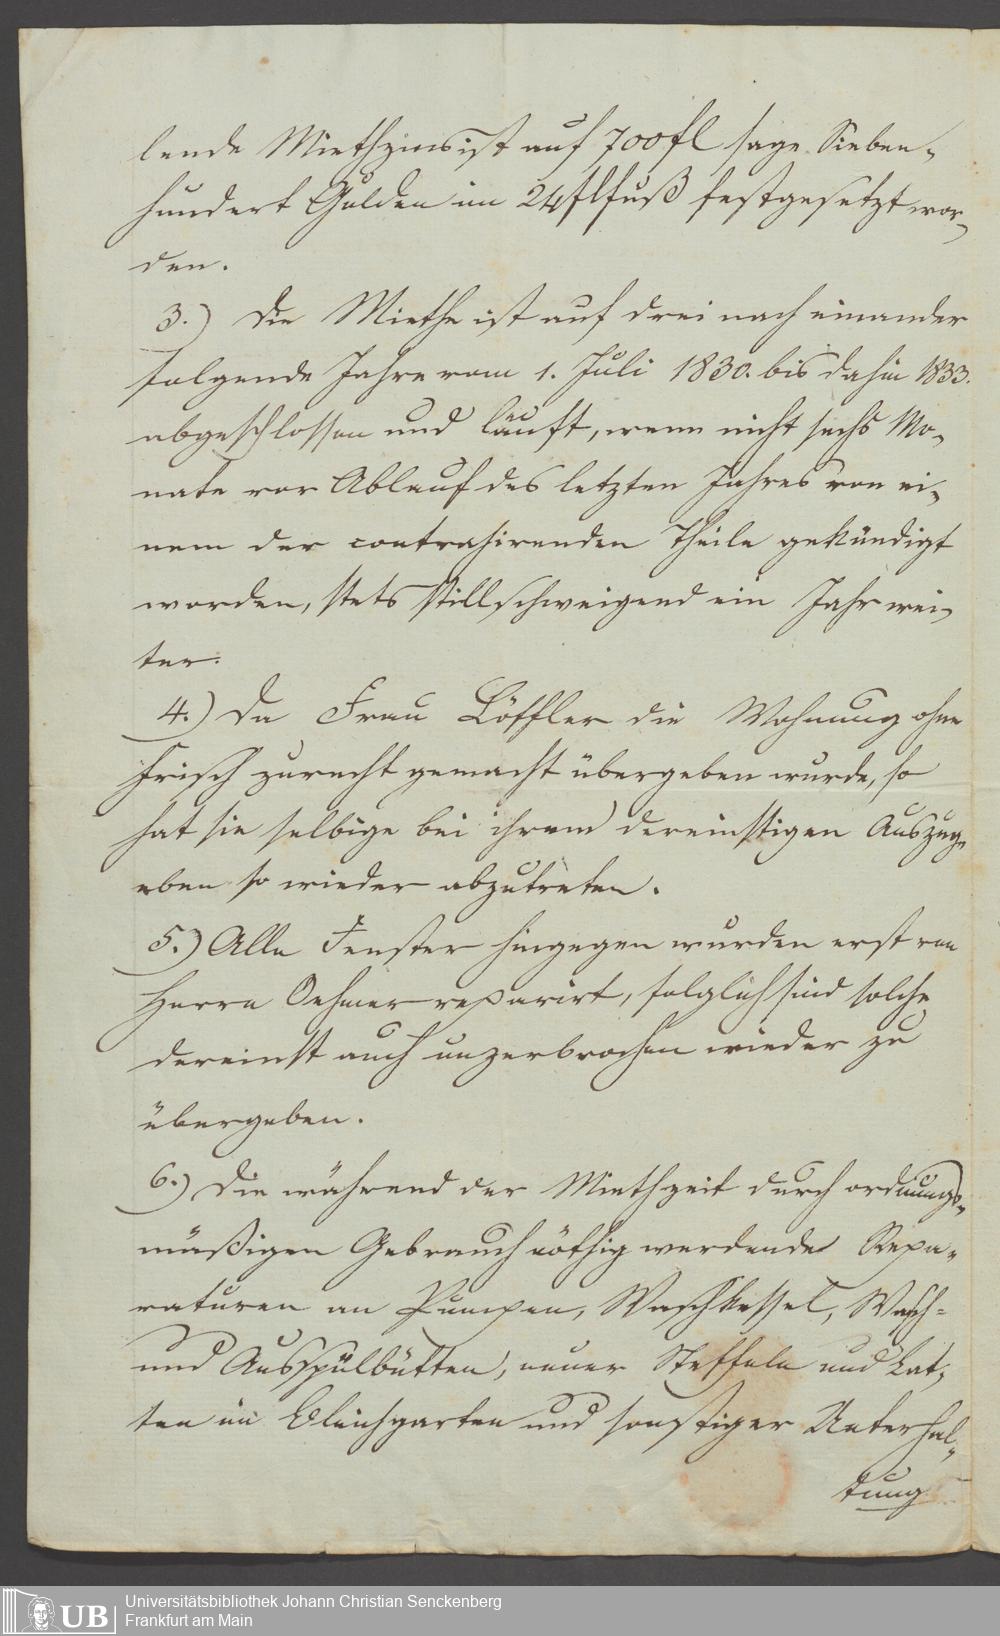 lende Miethzins ist auf 700 fl sage Sieben-
hundert Gulden im 24 flfuß festgesetzt wor-
den.
3.) Die Miethe ist auf drei nach einander
folgende Jahre vom 1. Juli 1830. bis dahin 1833.
abgeschlossen und läuft, wenn nicht sechs Mo-
nate vor Ablauf des letzten Jahres von ei-
nem der contrahirenden Theile gekündigt
worden, stets stillschweigend ein Jahr wei-
ter.
4.) Da Frau Löffler die Wohnung ohne
frisch zurecht gemacht übergeben wurde, so
hat sie selbige bei ihrem dereinstigen Auszuge
eben so wieder abzutreten.
5.) Alle Fenster hingegen wurden erst von
Herrn Oehmer reparirt, folglich sind solche
dereinst auch unzerbrochen wieder zu
übergeben.
6.) Die während der Miethzeit durch ordnungs-
mäßigen Gebrauch nöthig werdende Repa-
raturen an Pumpen, Waschkessel, Wasch-
und Ausspülbütten, neuer Steffeln und Lat-
ten im Bleichgarten und sonstiger Unterhal-
tung
Universitätsbibliothek Johann Christian Senckenberg
Frankfurt am Main
UB